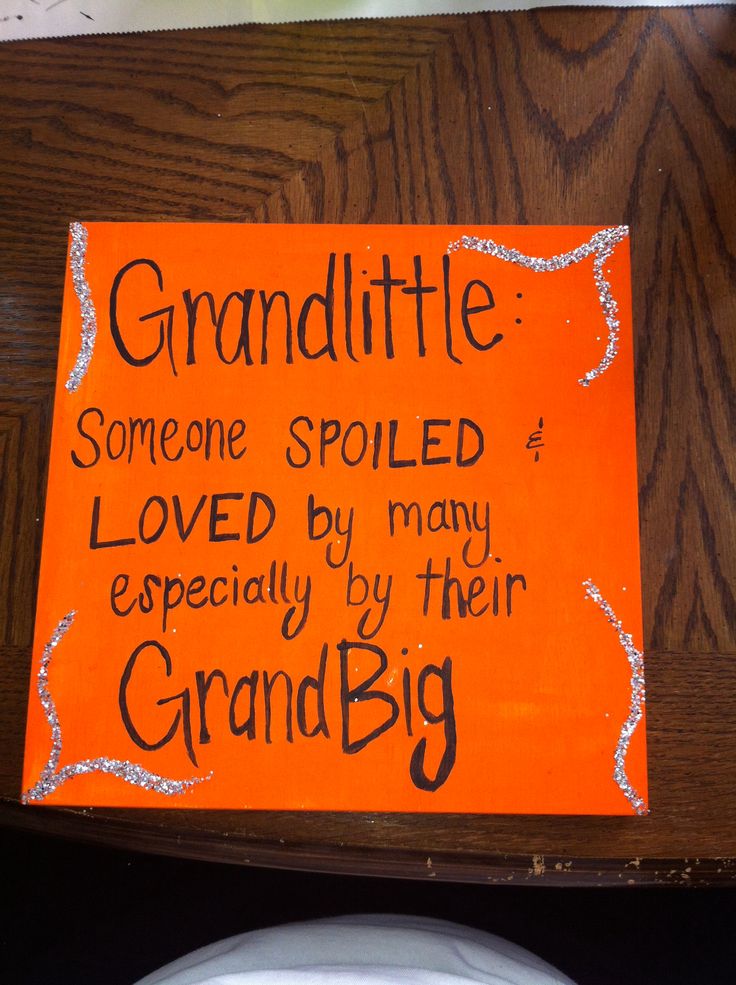 Grandlittle:
Someone SPOILED &
LOVED by many
especially by their
GrandBig